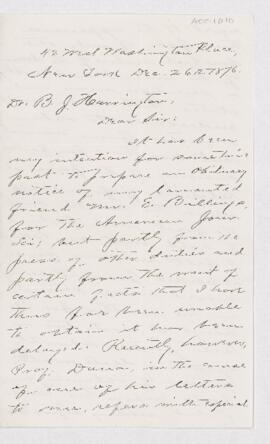 42 West Washington Place,
New York Dec. 26th 1876.
Dr. B. J. Harrington,
Dear Sir:
It has been
my intention for sometime
past to prepare an Obituary
notice of my lamented
friend Mr. E. Billings,
for the American Jour.
Sci; but partly from the
press of other duties and
partly from the want of
certain facts that I have
thus far been unable
to obtain it has been
delayed. Recently, however,
Prof. Dana, in the course
of one of his letters
to me, refers with especial